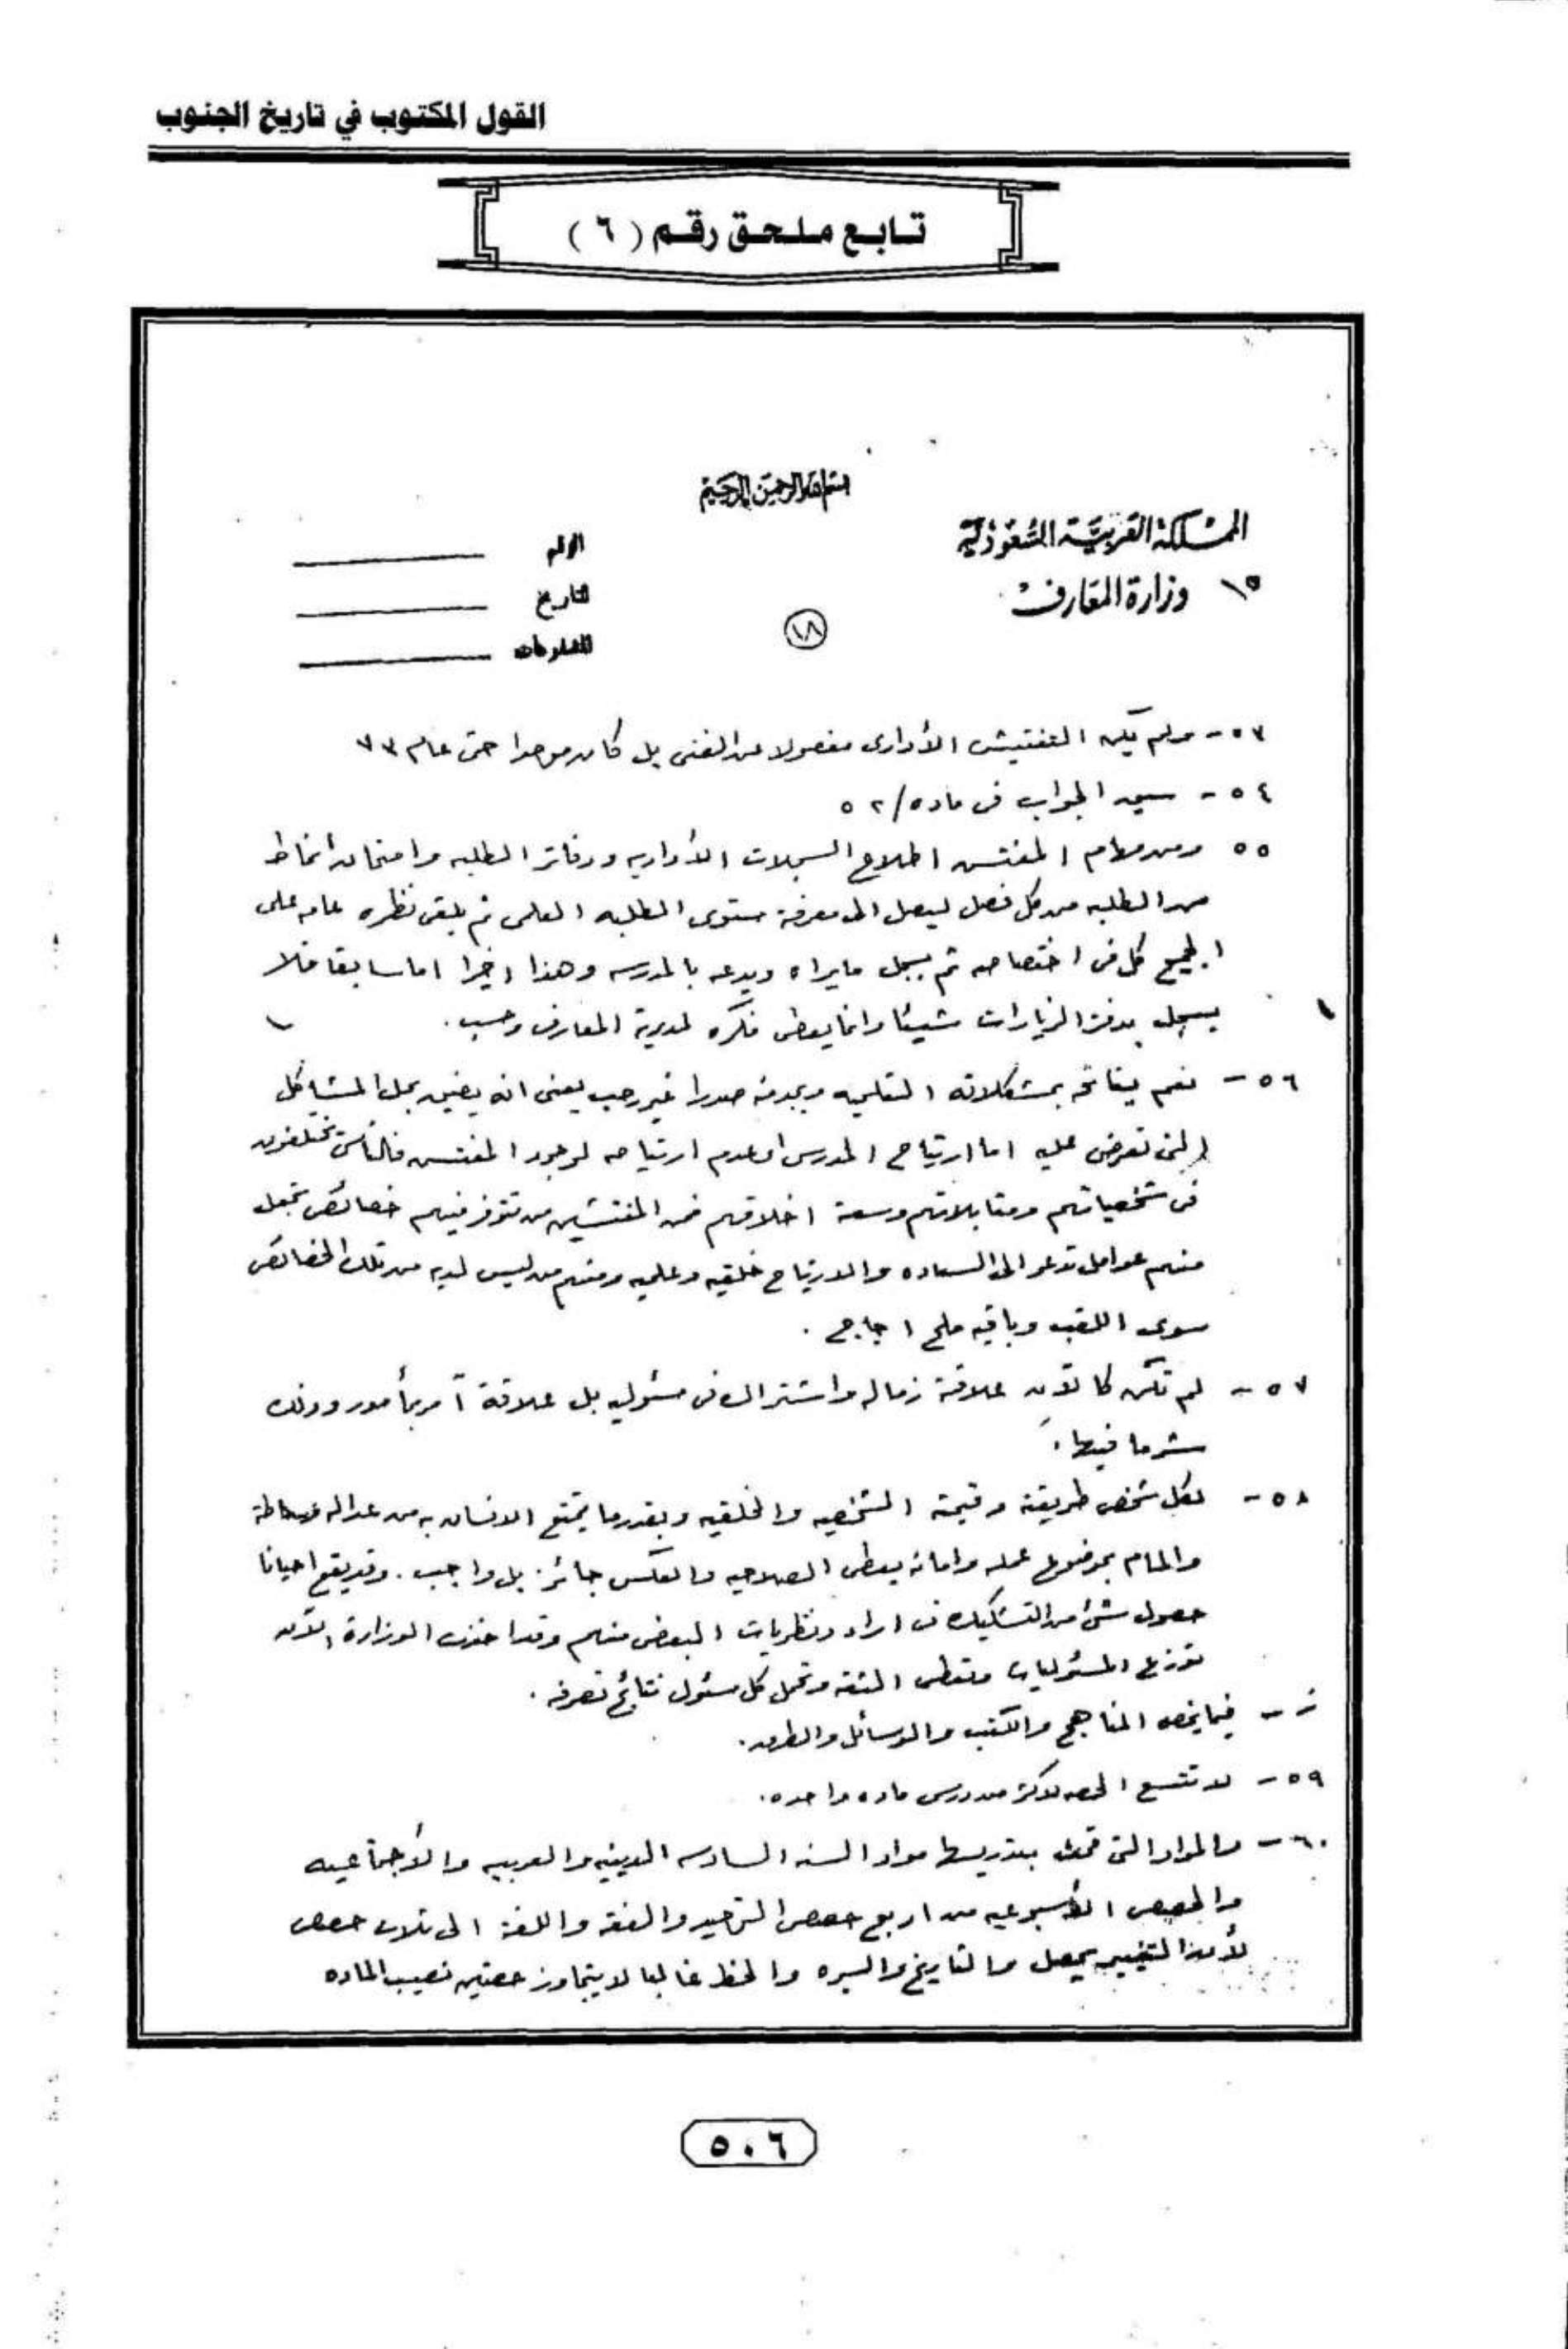 القول المكتوب في تاريخ الجنوب
تابع ملحق رقم (٦)
بسم الله الرحمن الرحيم
المملكة العربية السعودية
وزارة المعارف
١٥
الرقم
التاريخ
المشفوعات
١٨
٥٣ - ولم يكن التفتيش الأدارى مفصولا عن الفنى بل كان موحدا حتى عام ٧٣
٥٤ - سبق الجواب فى ماده / ٥٢
٥٥ ومن مهام المفتش اطلاع السجلات الأداريه ودفاتر الطلبه وامتحان أنماط
من الطلبه من كل فصل ليصل الى معرفة مستوى الطلبه العلمى ثم يلقى نظره عامه على
الجميع كل فى اختصاصه ثم يسجل مايراه ويدعه بالمدرسه وهذا اخيرا اما سابقا فلا
يسجل بدفتر الزيارات شيئا وانما يعطى فكره لمديرية المعارف وحسب .
٥٦ - نعم يفاتحه بمشكلاته التعليميه ويجد منه صدرا غير رحب يعنى انه يضيق بحل المشاكل
التى تعرض عليه اما ارتياح المدرس او عدم ارتياحه لوجود المفتش فالناس يختلفون
فى شخصياتهم ومقابلاتهم وسعة اخلاقهم فمن المفتشين من تتوفر فيهم خصائص تجعل
منهم عوامل تدعو الى السعاده والارتياح خلقيه وعلميه ومنهم من ليس لديه من تلك الخصائص
سوى اللقب وباقيه ملح اجاج .
٥٧ - لم تكن كالآن علاقة زماله واشتراك فى مسئوليه بل علاقة آمر بمأمور وذلك
شر ما فيها .
٥٨ - لكل شخص طريقته وقيمته الشخصيه والخلقيه وبقدر ما يتمتع الانسان به من عداله
والمام بموضوع عمله وامانه يعطى الصلاحيه والعكس جائز . بل واجب . وقد يقع احيانا
حصول شئ من التشكيك فى اراء ونظريات البعض منهم وقد اخذت الوزارة الآن
توزع المسئوليات وتعطى الثقه وتحمل كل مسئول نتائج تصرفه .
ز - فيما يخص المناهج والكتب والوسائل والطرق .
٥٩ - لا تتسع الحصه لاكثر من درس ماده واحده .
٦٠ - والمواد التى قمت بتدريسها مواد السنه السادسه الدينيه والعربيه والأجتماعيه
والحصص الأسبوعيه من اربع حصص التوحيد والفقه واللغة الى ثلاث حصص
لأن التغيير يحصل والتاريخ والسيره والخط غالبا لا يتجاوز حصتين نصيب الماده
٥٠٦